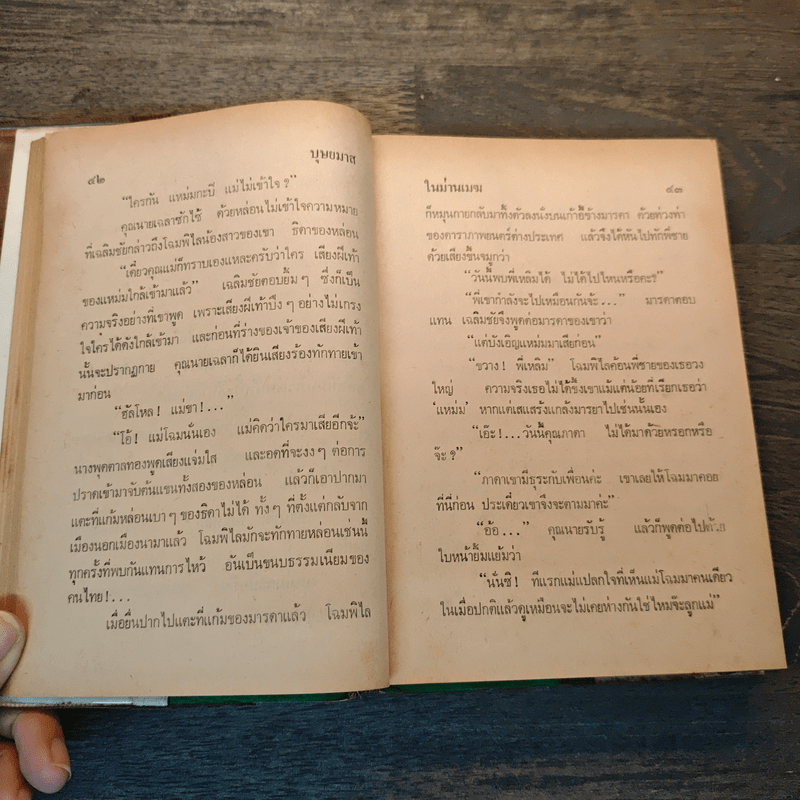 ๔๒ บุษยมาส
“ใครกัน แหม่มกะบี แม่ไม่เข้าใจ ?”
คุณนายเฉลาซักไซ้ ด้วยหล่อนไม่เข้าใจความหมาย
ที่เฉลิมชัยกล่าวถึงโฉมพิไลน้องสาวของเขา ธิดาของหล่อน
“เดี๋ยวคุณแม่ก็ทราบเองแหละครับว่าใคร เสียงฝีเท้า
ของแหม่มใกล้เข้ามาแล้ว” เฉลิมชัยตอบยิ้ม ๆ ซึ่งก็เป็น
ความจริงอย่างที่เขาพูด เพราะเสียงฝีเท้าปึง ๆ อย่างไม่เกรง
ใจใครได้ดังใกล้เข้ามา และก่อนที่ร่างของเจ้าของเสียงฝีเท้า
นั้นจะปรากฏกาย คุณนายเฉลาก็ได้ยินเสียงร้องทักทายเข้า
มาก่อน
“ฮัลโหล ! แม่ขา !...”
“โอ้ ! แม่โฉมนั่นเอง แม่คิดว่าใครมาเสียอีกจ้ะ”
นางพุดตาลทองพูดเสียงแจ่มใส และอดที่จะงง ๆ ต่อการ
ปราดเข้ามาจับต้นแขนทั้งสองของหล่อน แล้วก็เอาปากมา
แตะที่แก้มหล่อนเบา ๆ ของธิดาไม่ได้ ทั้ง ๆ ที่ตั้งแต่กลับจาก
เมืองนอกเมืองนามาแล้ว โฉมพิไลมักจะทักทายหล่อนเช่นนี้
ทุกครั้งที่พบกันแทนการไหว้ อันเป็นขนบธรรมเนียมของ
คนไทย !...
เมื่อยื่นปากไปแตะที่แก้มของมารดาแล้ว โฉมพิไล
ในม่านเมฆ ๔๓
ก็หมุนกายกลับมาทิ้งตัวลงนั่งบนเก้าอี้ข้างมารดา ด้วยท่วงท่า
ของดาราภาพยนตร์ต่างประเทศ แล้วจึงได้หันไปทักพี่ชาย
ด้วยเสียงขึ้นจมูกว่า
“วันนี้พบพี่เหลิมได้ ไม่ได้ไปไหนหรือคะ?”
“พี่เขากำลังจะไปเหมือนกันจ้ะ...” มารดาตอบ
แทน เฉลิมชัยจึงพูดต่อมารดาของเขาว่า
“แต่บังเอิญแหม่มมาเสียก่อน”
“ขวาง ! พี่เหลิม” โฉมพิไลค้อนพี่ชายของเธอวง
ใหญ่ ความจริงเธอไม่ได้ขึ้งเขาแม้แต่น้อยที่เรียกเธอว่า
‘แหม่ม’ หากแต่เสแสร้งแกล้งมารยาไปเช่นนั้นเอง
“เอ๊ะ !...วันนี้คุณภาดา ไม่ได้มาด้วยหรอกหรือ
จ๊ะ ?”
“ภาดาเขามีธุระกับเพื่อนค่ะ เขาเลยให้โฉมมาคอย
ที่นี่ก่อน ประเดี๋ยวเขาจึงจะตามมาค่ะ”
“อ้อ...” คุณนายรับรู้ แล้วก็พูดต่อไปด้วย
ใบหน้ายิ้มแย้มว่า
“นั่นซิ ! ทีแรกแม่แปลกใจที่เห็นแม่โฉมมาคนเดียว
ในเมื่อปกติแล้วดูเหมือนจะไม่เคยห่างกันใช่ไหมจ๊ะลูกแม่”